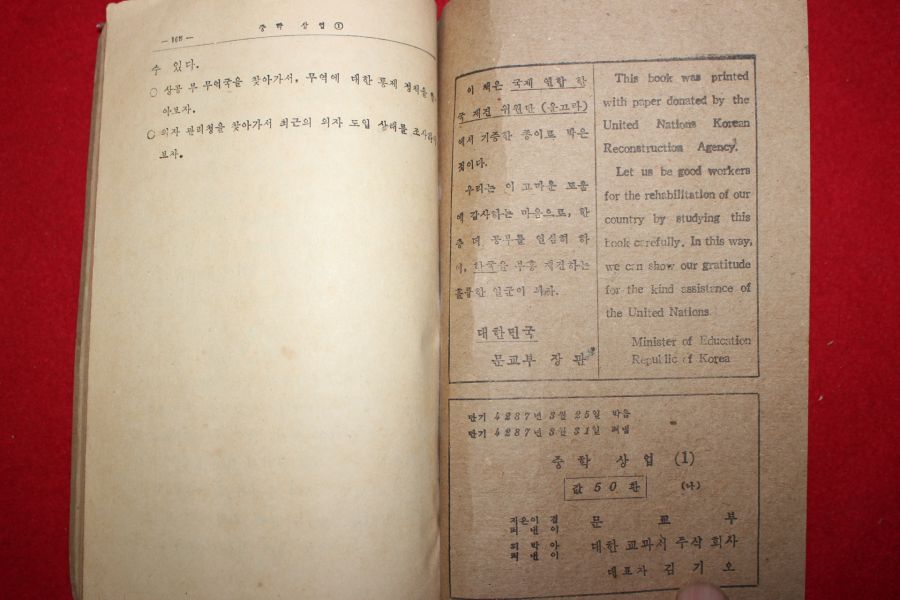 중학 상업 ①
수 있다.
○ 상공 부 무역국을 찾아가서, 무역에 대한 통제 정책을
아보자.
○ 외자 관리청을 찾아가서 최근의 외자 도입 상태를 조사하여
보자.
이 책은 국제 연합 한
국 재건 위원단 (운끄라)
에서 기증한 종이로 박은
것이다.
우리는 이 고마운 도움
에 감사하는 마음으로, 한
층 더 공부를 열심히 하
여, 한국을 부흥 재건하는
훌륭한 일군이 되자.
대한민국
문교부 장관
This book was printed
with paper donated by the
United Nations Korean
Reconstruction Agency.
Let us be good workers
for the rehabilitation of our
country by studying this
book carefully. In this way,
we can show our gratitude
for the kind assistance of
the United Nations.
Minister of Education
Republic of Korea
단기 4287년 3월 25일 박음
단기 4287년 3월 31일 펴냄
중학 상업 (1)
값 50환 (나)
지은이 겸 펴낸이 문교부
대한 교과서 주식 회사
대표자 김기오